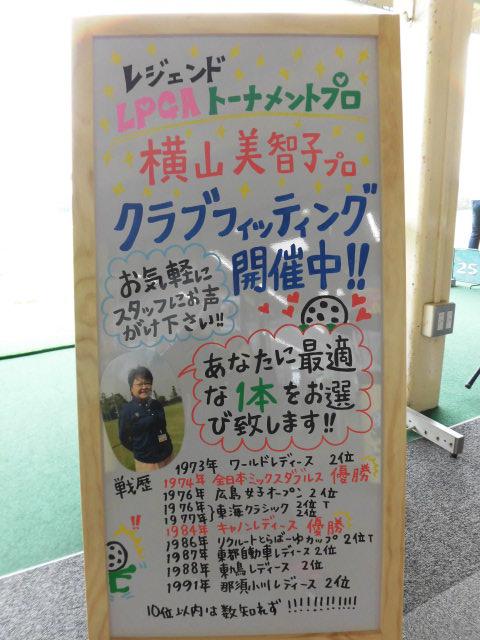 レジェンド
LPGA トーナメントプロ
横山美智子プロ
クラブフィッティング
開催中!!
お気軽に
スタッフにお声
がけ下さい!!
あなたに最適
な1本をお選
び致します!!
戦歴
1973年 ワールドレディース 2位
1974年 全日本ミックスダブルス 優勝
1976年 広島女子オープン 2位
1976年 } 東海クラシック 2位T
1977年 } 2位
1984年 キャノンレディース 優勝
1986年 リクルートとらばーゆカップ 2位T
1987年 東都自動車レディース 2位
1988年 東鳩レディース 2位
1991年 那須小川レディース 2位
10位以内は数知れず!!!!!!!!!!!
!!
25